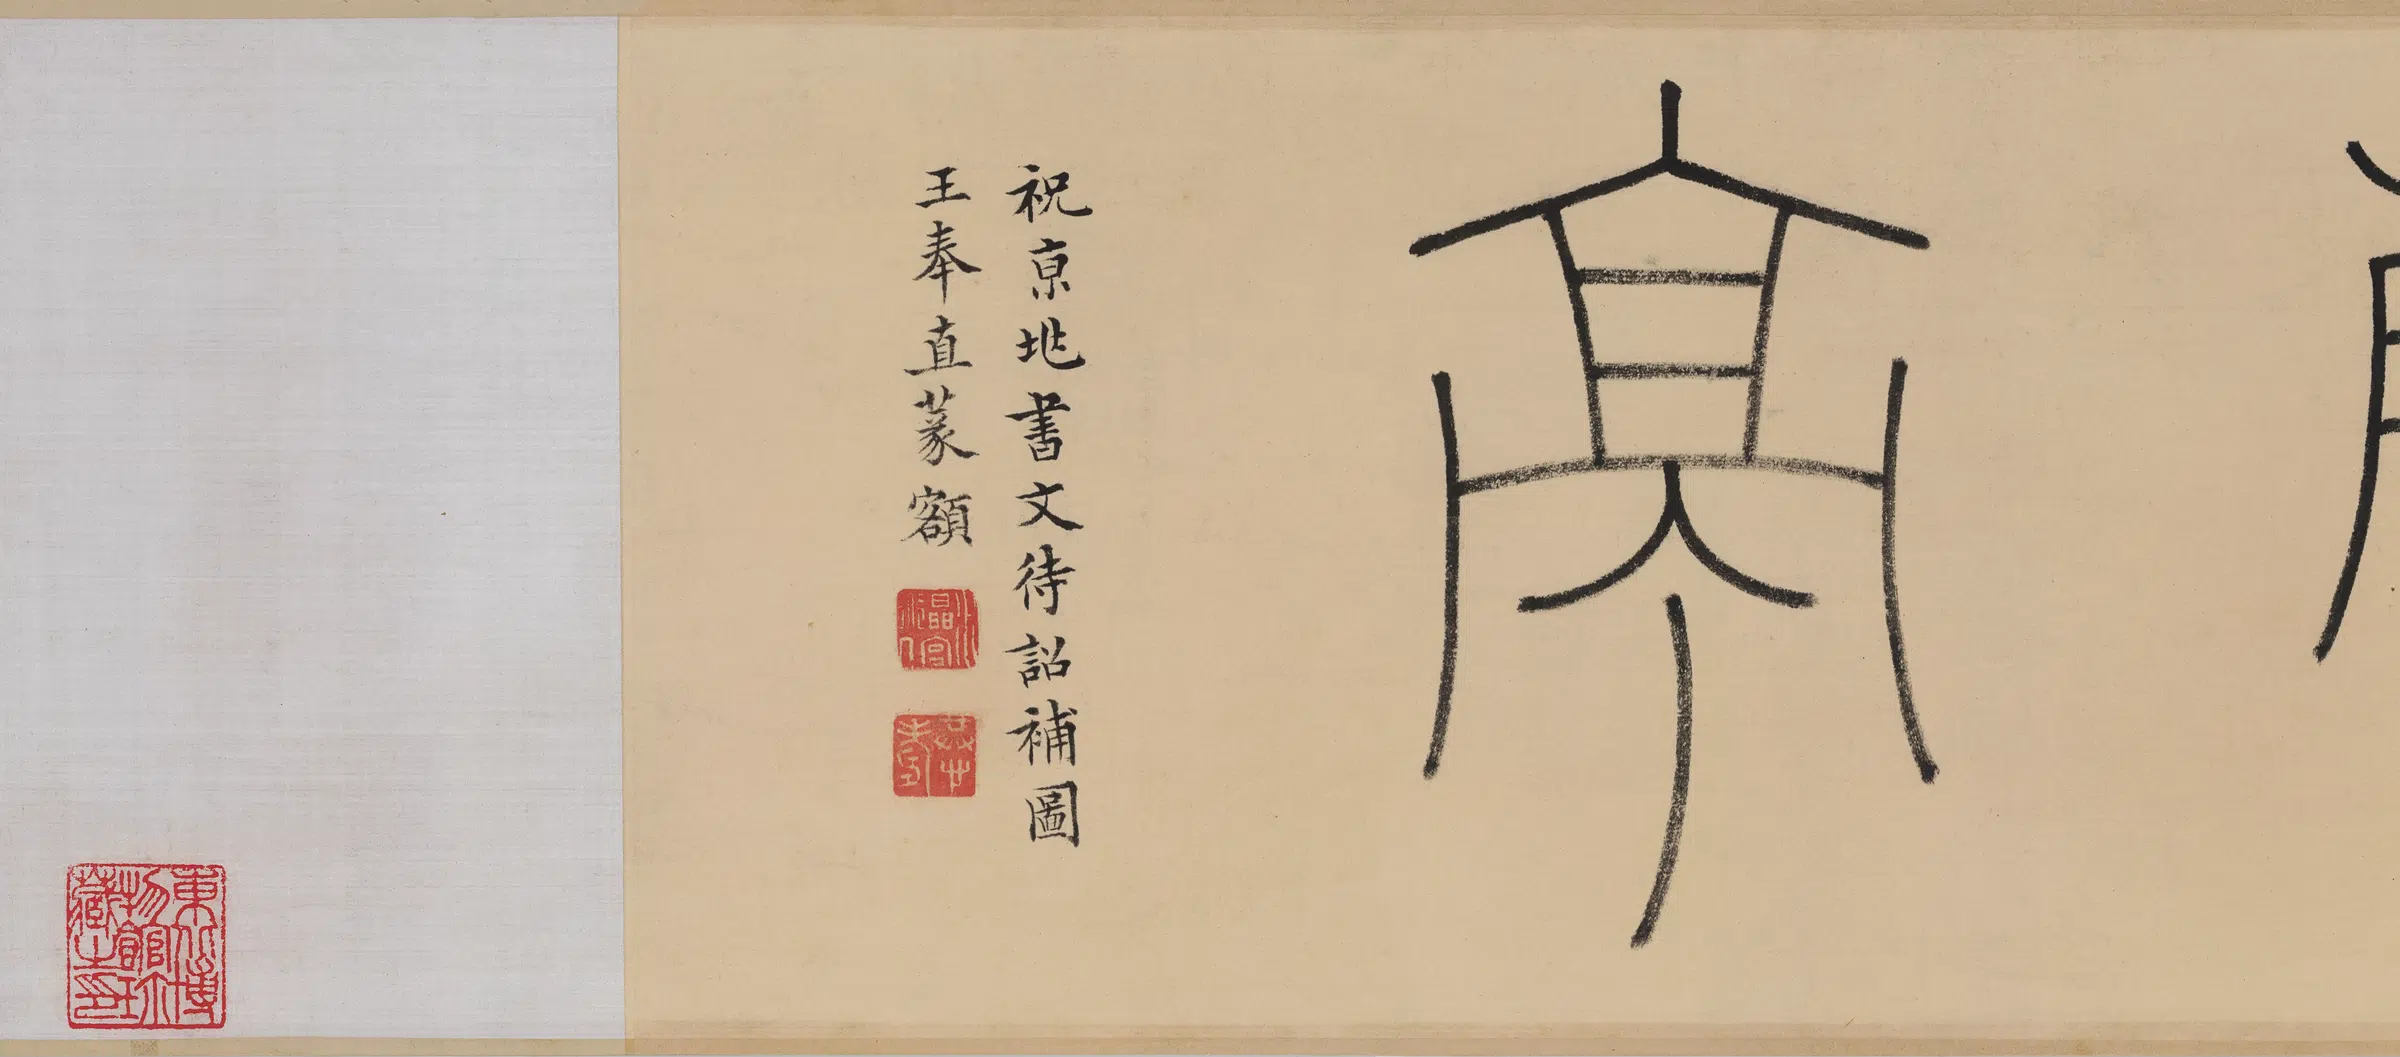 亭
祝京兆書文待詔補圖
王奉直篆額
東北博物館珍藏之印